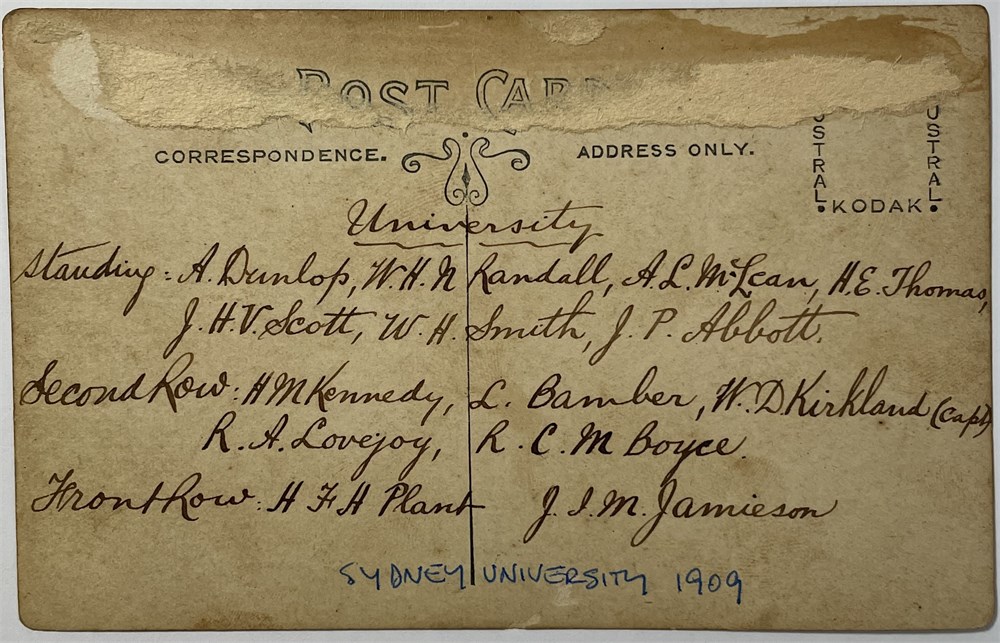 POST CARD
CORRESPONDENCE.
ADDRESS ONLY.
USTRAL
KODAK
USTRAL
University
Standing: A. Dunlop, W. H. N Randall, A. L. McLean, H. E. Thomas,
J. H. V. Scott, W. H. Smith, J. P. Abbott.
Second Row: H M Kennedy, L. Bamber, W. D Kirkland (Capt)
R. A. Lovejoy, R. C. M Boyce.
Front Row: H F H Plant J. I. M. Jamieson
SYDNEY UNIVERSITY 1909